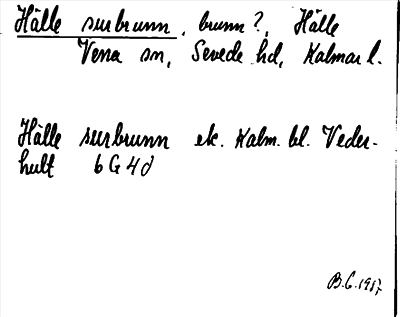 Hälle surbrunn, brunn?, Hälle
Vena sn, Sevede hd, Kalmar l.
Hälle surbrunn ek. Kalm. bl. Veder-
hult 6 G 4 d
B.G. 1987